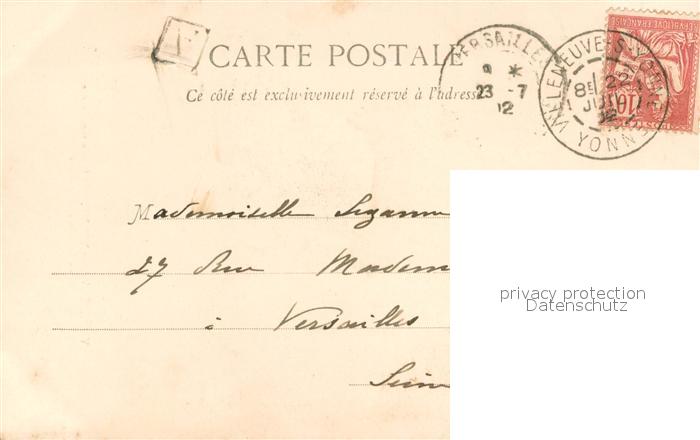 CARTE POSTALE
Ce côté est exclusivement réservé à l'adresse
VERSAILLES
23 -7
02
VILLENEUVE-S-YONNE
8E
YONNE
RÉPUBLIQUE FRANÇAISE
10
POSTES
Mademoiselle Suzanne
27 Rue Madem
à Versailles
Sein
privacy protection
Datenschutz